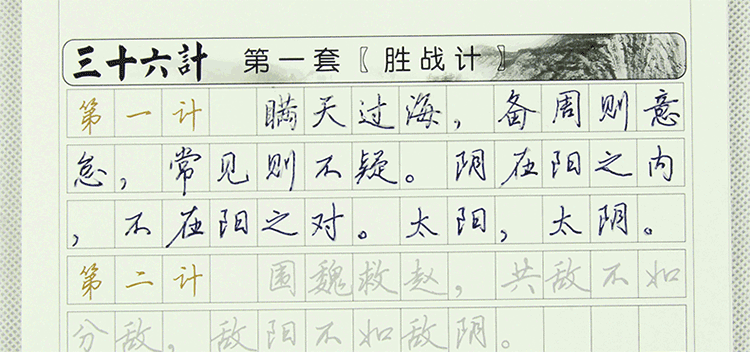 三十六計 第一套〖胜战计〗
第一计 瞒天过海，备周则意
怠，常见则不疑。阴在阳之内
，不在阳之对。太阳，太阴。
第二计 围魏救赵，共敌不如
分敌，敌阳不如敌阴。